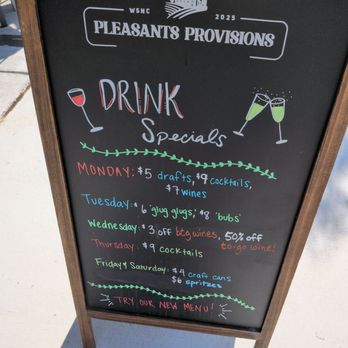 WSNC 2025
PLEASANTS PROVISIONS
DRINK
Specials
MONDAY: $5 drafts, $9 cocktails,
$7 wines
Tuesday: $6 'glug glugs,' $8 'bubs'
Wednesday: $3 off btg wines, 50% off
to-go wine!
Thursday: $9 cocktails
Friday & Saturday: $4 craft cans
$6 spritzes
TRY OUR NEW MENU!